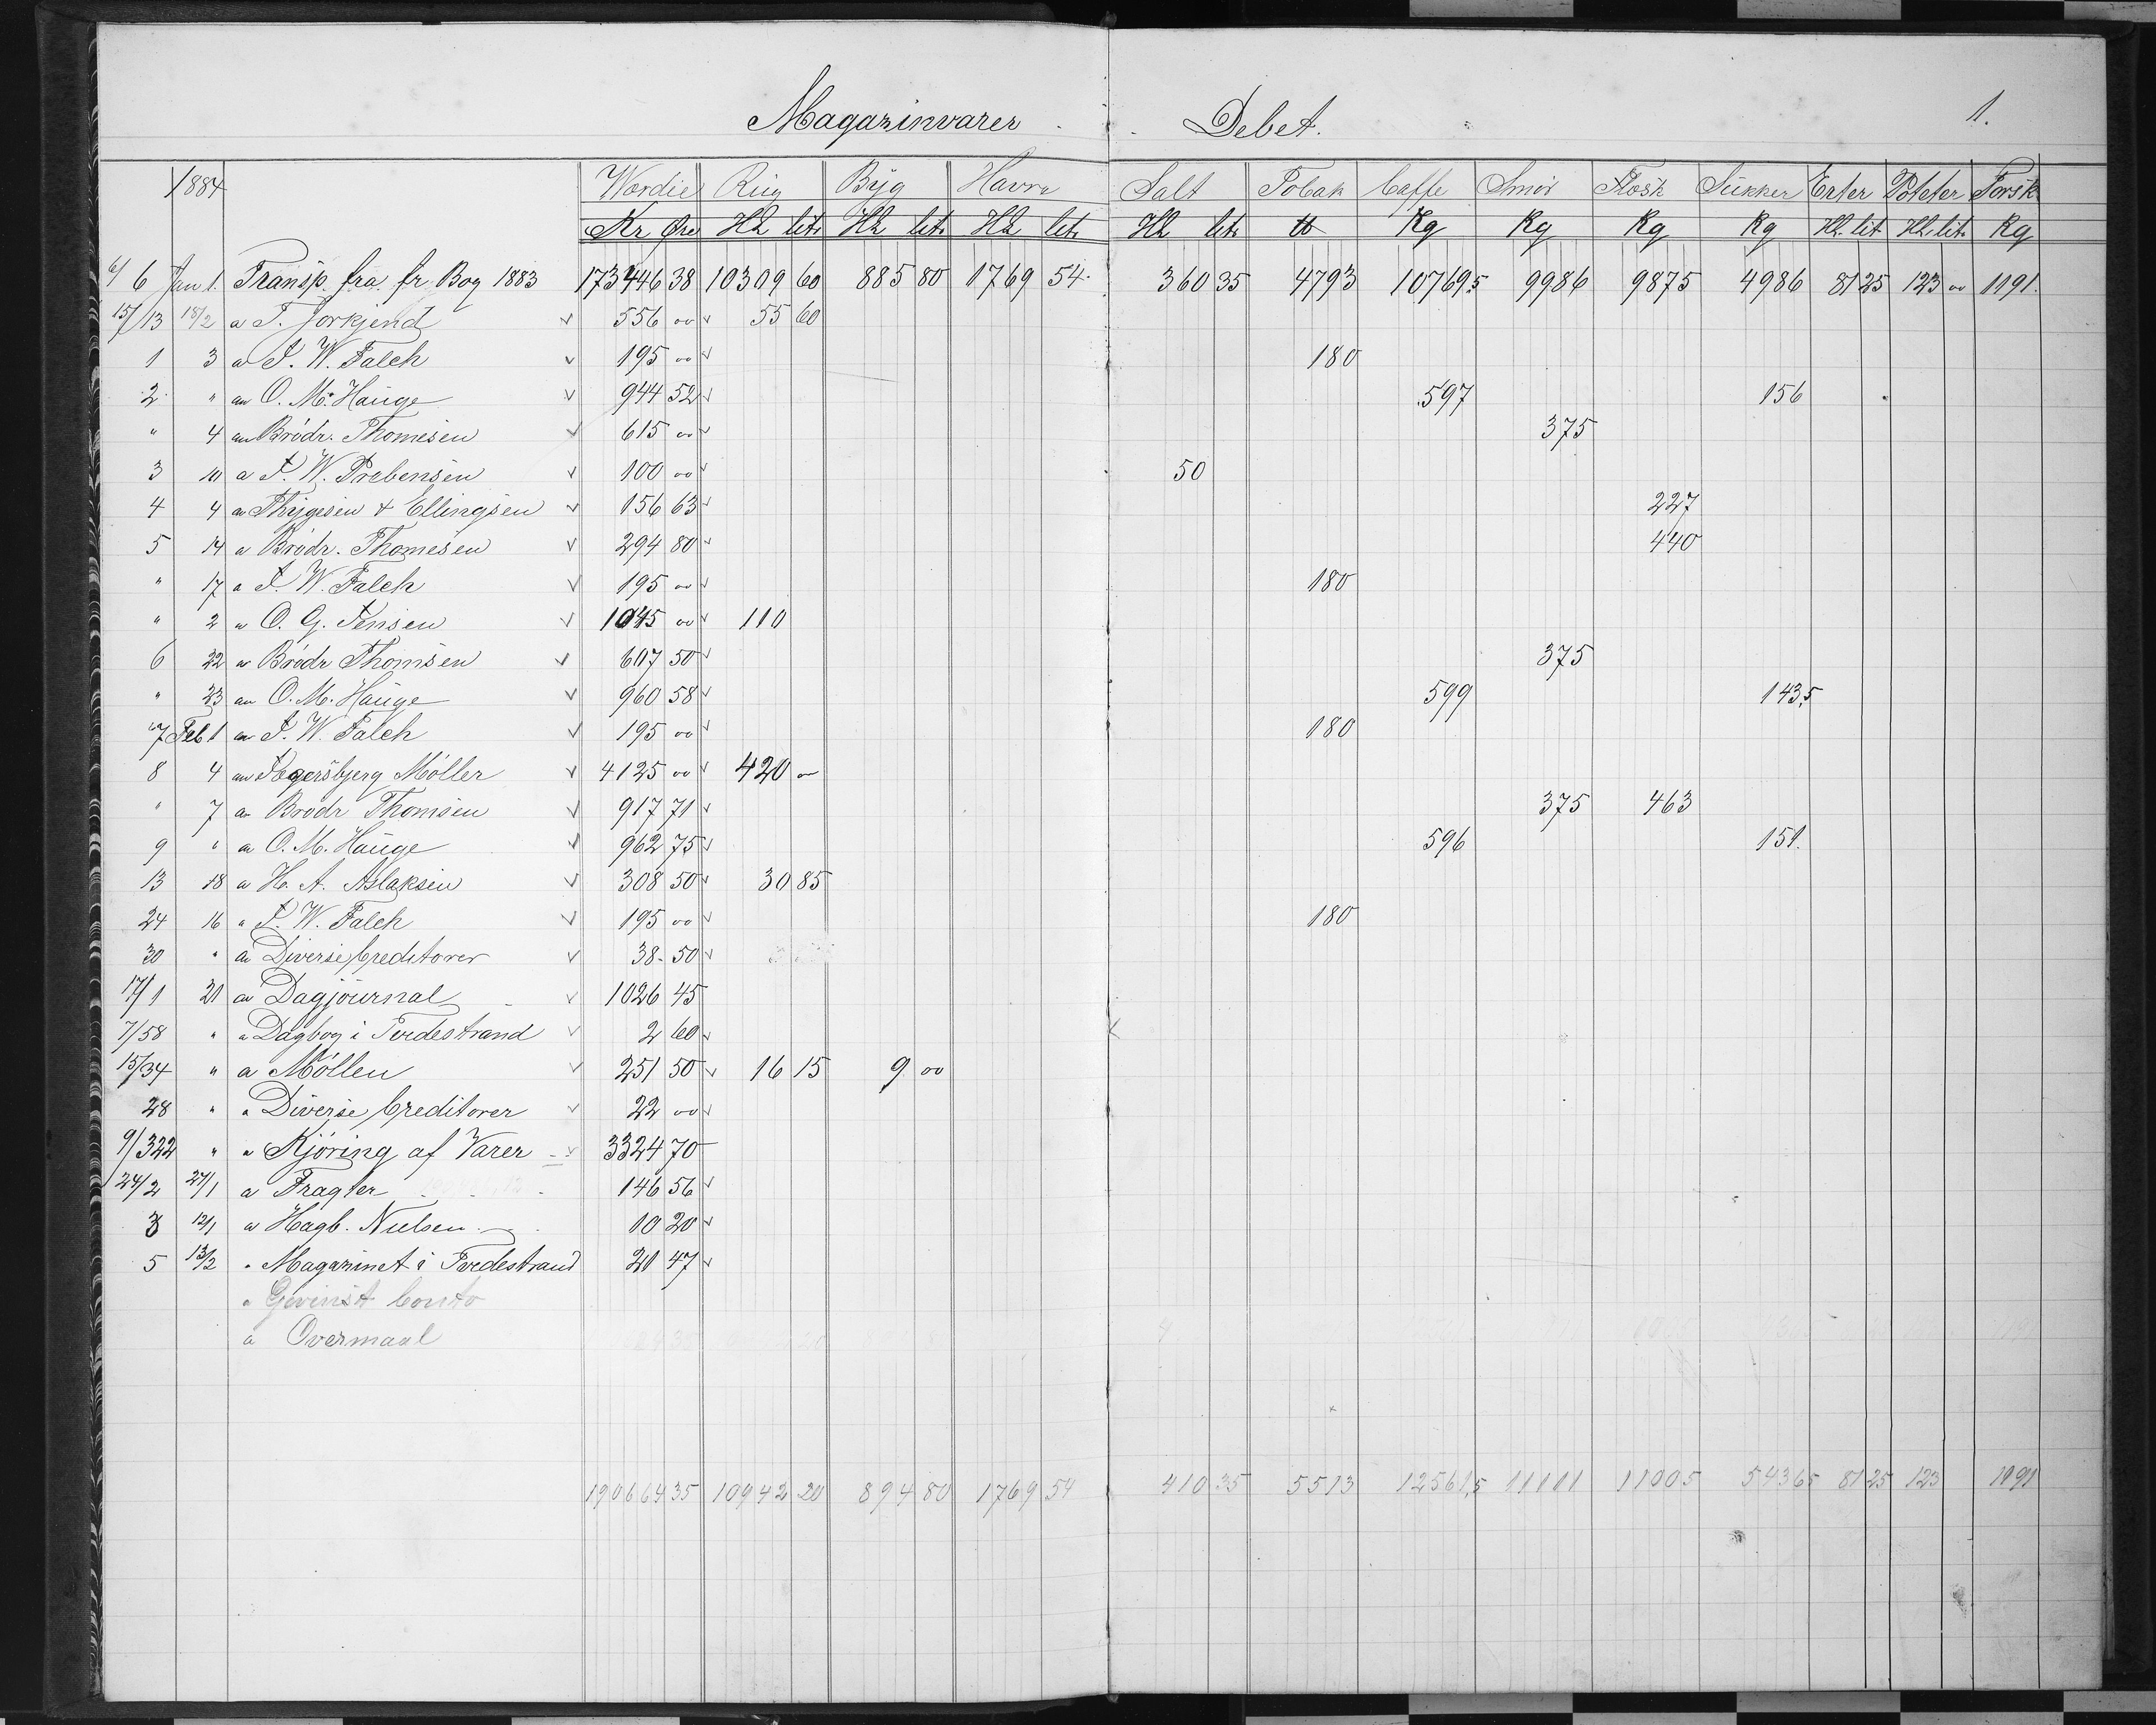 Magazinvarer Debet. 1.
1884 Wærdie Rüg Büg Havre Salt Tobak Caffe Smör Flesk Sükker Erter Poteter Torsk
Kr Øre Hl lit. Hl lit. Hl lit. Hl lit. ℔ Kg Kg Kg Kg Hl. lit Hl. lit. Kg
6/ 6 Jan 1. Transp. fra fr. Bog 1883 173446 38 10309 60 885 80 1769 54 360 35 4793 10769,5 9986 9875 4986 81 25 123 00 1191.
15/13 18/2 a T. Jorkjend 556 00 55 60
1 3 a J. W. Falch 195 00 180
2 " a O. M. Hauge 944 52 597 156
" 4 a Brödr. Thomesen 615 00 375
3 10 a J. W. Prebensen 100 00 50
4 4 a Thygesen & Ellingsen 156 63 227
5 14 a Brödr. Thomesen 294 80 440
" 17 a J. W. Falch 195 00 180
" 2 a O. G. Jensen 1045 00 110
6 22 a Brödr Thomsen 607 50 375
" 23 a O. M. Hauge 960 58 599 143,5
7 Feb 1 a J. W. Falch 195 00 180
8 4 a Fogersbjerg Möller 4125 00 420 —
" 7 a Brödr Thomsen 917 71 375 463
9 " a O. M. Hauge 962 75 596 151.
13 18 a H. A. Aslaksen 308 50 30 85
24 16 " J. W. Falch 195 00 180
30 " a Diverse Creditorer 38 50
17/1 21 a Dagjournal 1026 45
7/58 " a Dagbog i Tvedestrand 2 60
15/34 " a Möllen 251 50 16 15 9 00
28 " a Diverse Creditorer 22 00
9/322 " a Kjöring af Varer 3324 70
24/2 27/1 a Fragter 146 56
3 12/1 a Hagb. Nielsen 10 20
5 13/2 " Magazinet i Tvedestrand 21 47
a Gevinst Conto
a Overmaal
190664 35 10942 20 894 80 1769 54 410 35 5513 12561,5 11111 11005 5436 5 81 25 123 1191